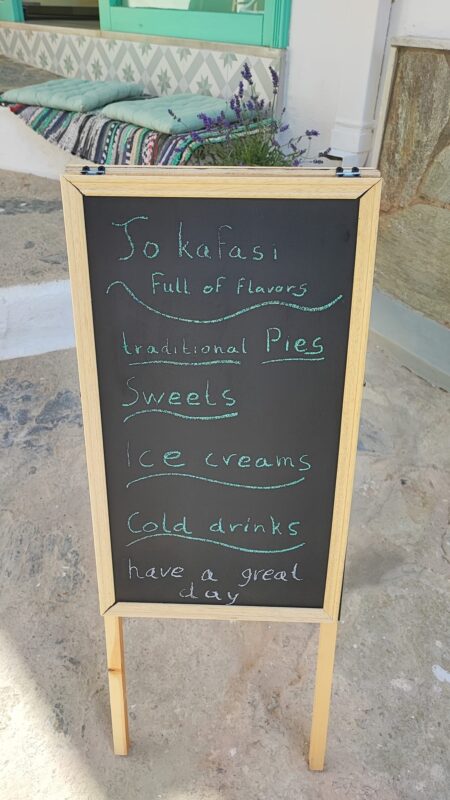 To kafasi
Full of flavors
traditional Pies
Sweets
Ice creams
Cold drinks
have a great
day